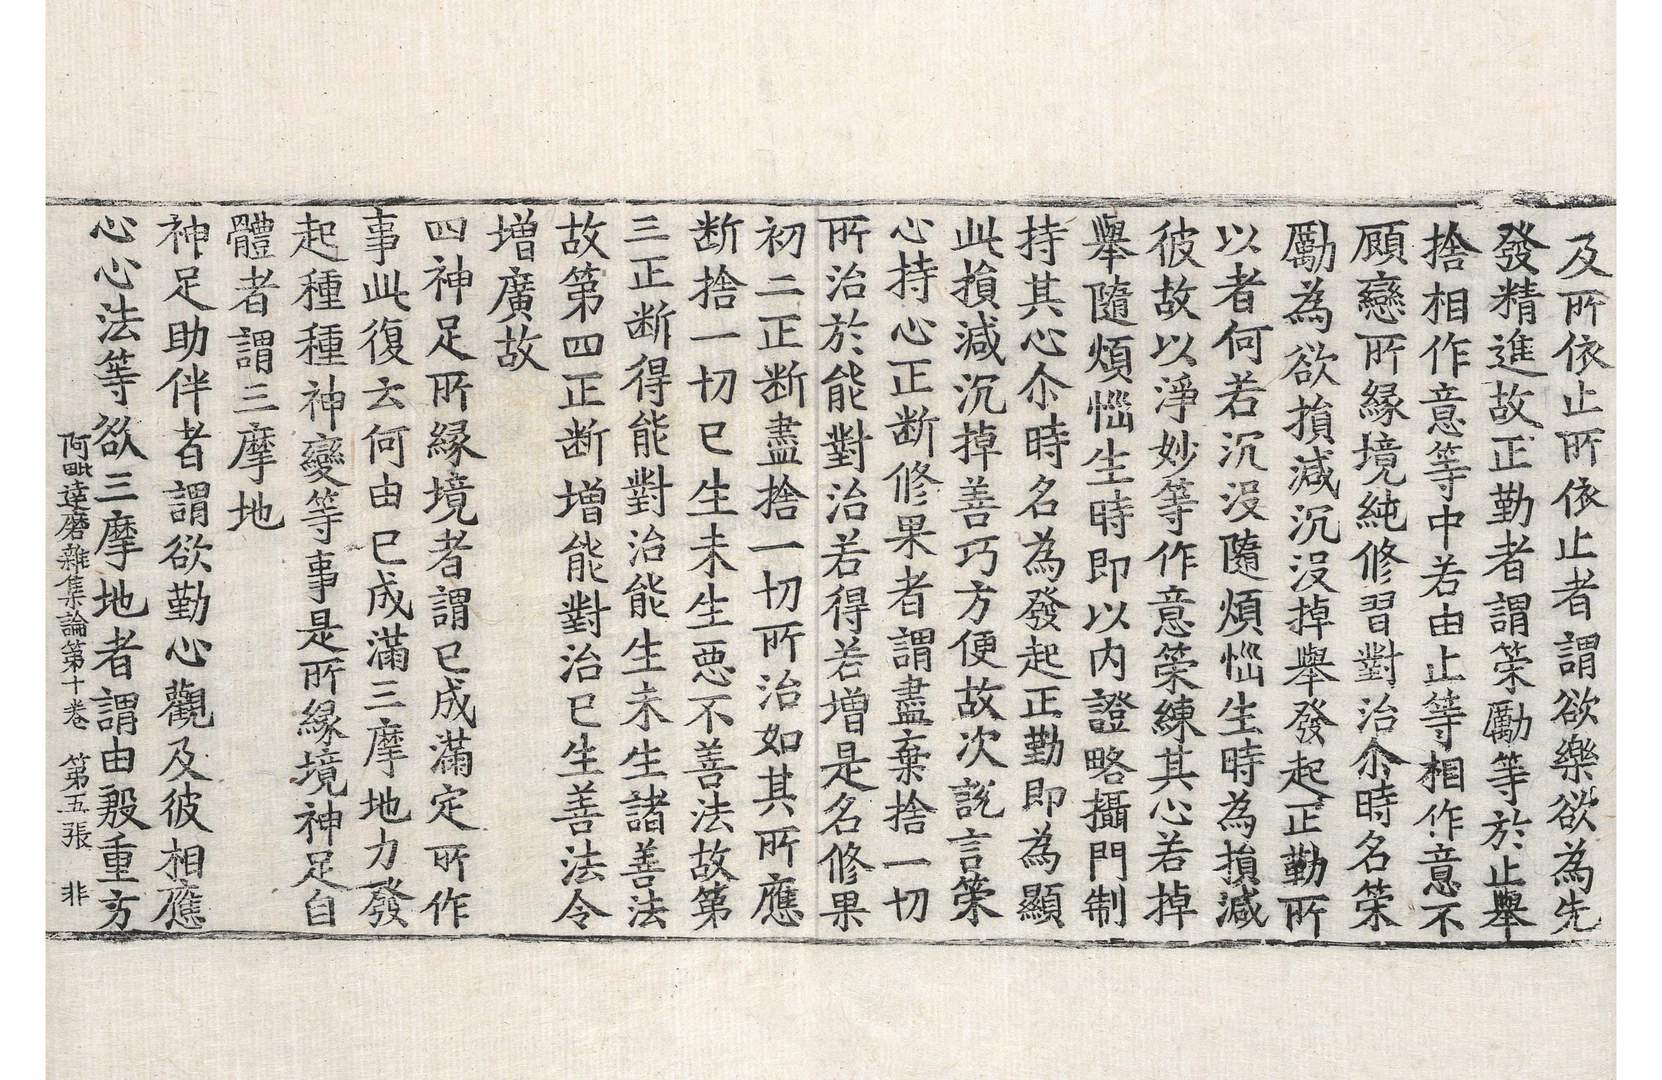 及所依止所依止者謂欲樂欲為先
發精進故正勤者謂策勵等於止舉
捨相作意等中若由止等相作意不
顧戀所縁境純修習對治尒時名策
勵為欲損減沉没掉舉發起正勤所
以者何若沉没隨煩惱生時為損減
彼故以淨妙等作意策練其心若掉
舉隨煩惱生時即以內證略攝門制
持其心尒時名為發起正勤即為顯
此損減沉掉善巧方便故次說言策
心持心正断修果者謂盡棄捨一切
所治於能對治若得若增是名修果
初二正断盡捨一切所治如其所應
断捨一切已生未生惡不善法故第
三正断得能對治能生未生諸善法
故第四正断增能對治已生善法令
增廣故
四神足所縁境者謂已成滿定所作
事此復云何由已成滿三摩地力發
起種種神變等事是所縁境神足自
體者謂三摩地
神足助伴者謂欲勤心觀及彼相應
心心法等欲三摩地者謂由殷重方
阿毗達磨雜集論第十卷 第五張 非